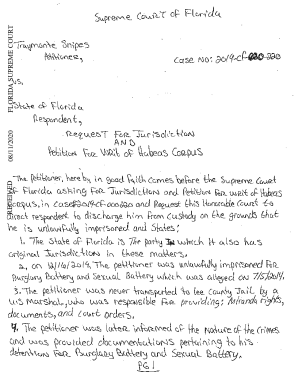 Supreme Court of Florida
Traymonte Snipes
Petitioner,
Case No: 2019-CF-
vs,
State of Florida
Respondent,
Request For Jurisdiction
AND
Petition For Writ of Habeas Corpus
The Petitioner, hereby in good Faith comes before the Supreme Court
of Florida asking For Jurisdiction and Petition For Writ of Habeas
Corpus, in case and Request this Honorable Court to
Direct respondent to discharge him From custody on the grounds that
he is unlawfully imprisoned and States:
1. The State of Florida is The party in which it also has
original Jurisdiction in these matters,
2, on 12/16/2019, The petitioner was unlawfully imprisoned For
Burglary Battery and Sexual Battery which was alleged on 7/5/2019,
3. The petitioner was never transported to Lee County Jail by a
US Marshal, who was responsible For providing; Miranda rights,
documents, and Court orders,
4. The petitioner was later informed of the Nature of the Crimes
and was provided documentations pertaining to his
detention For Burglary Battery and Sexual Battery.
PG1
RECEIVED, 08/11/2020 FLORIDA SUPREME COURT